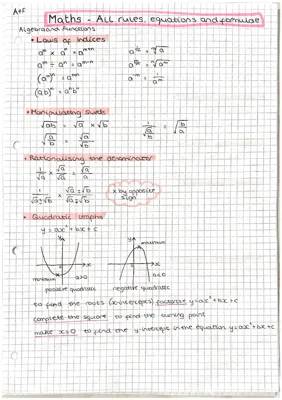 A+F
Maths - All rules, equations and formulae
Algebra and functions
• Laws of indices
aᵐ × aⁿ = aᵐ⁺ⁿ
aᵐ ÷ aⁿ = aᵐ⁻ⁿ
(aᵐ)ⁿ = aᵐⁿ
(ab)ⁿ = aⁿbⁿ
• Manipulating surds
√ab = √a × √b
• Rationalising the denominator
x by opposite sign
• Quadratic graphs
y = ax² + bx + c
y x minimum a>0
y x maximum a<0
positive quadratic negative quadratic
to find the roots (x-intercepts) factorise y=ax²+bx+c
complete the square to find the turning point
make x=0 to find the y-intercept in the equation y=ax²+bx+c